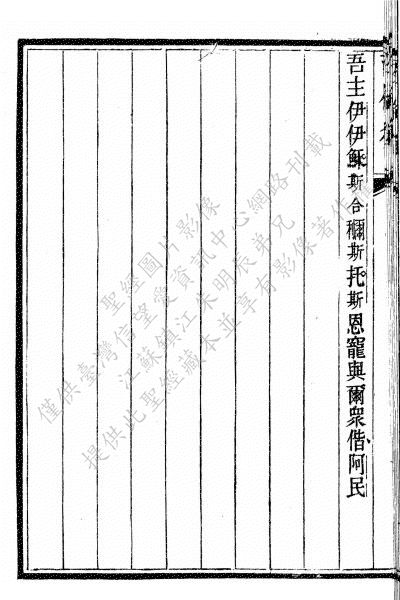 吾主伊伊穌斯合穪斯托斯恩寵與爾眾偕阿民
聖經圖片影像
僅供臺灣信望愛資訊中心網路刊載
江蘇鎮江朱明辰弟兄
提供此聖經藏本並享有影像著作